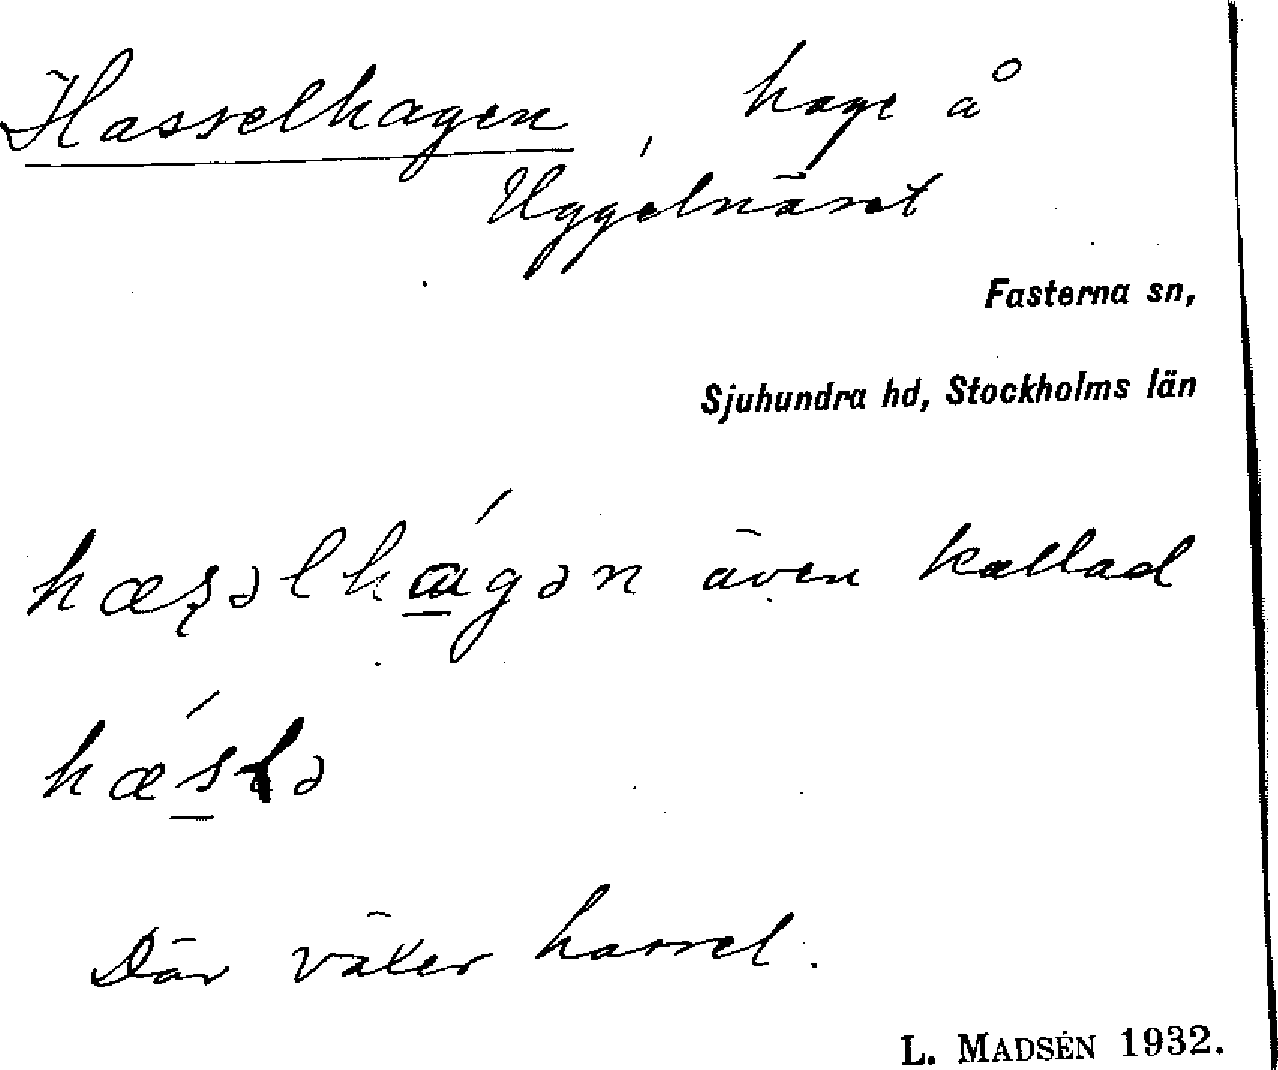 Hasselhagen, hage å
Uggelnäset
Fasterna sn,
Sjuhundra hd, Stockholms län
hæsəlhágən även kallad
hǽslə
Där växer hassel.
L. MADSÉN 1932.